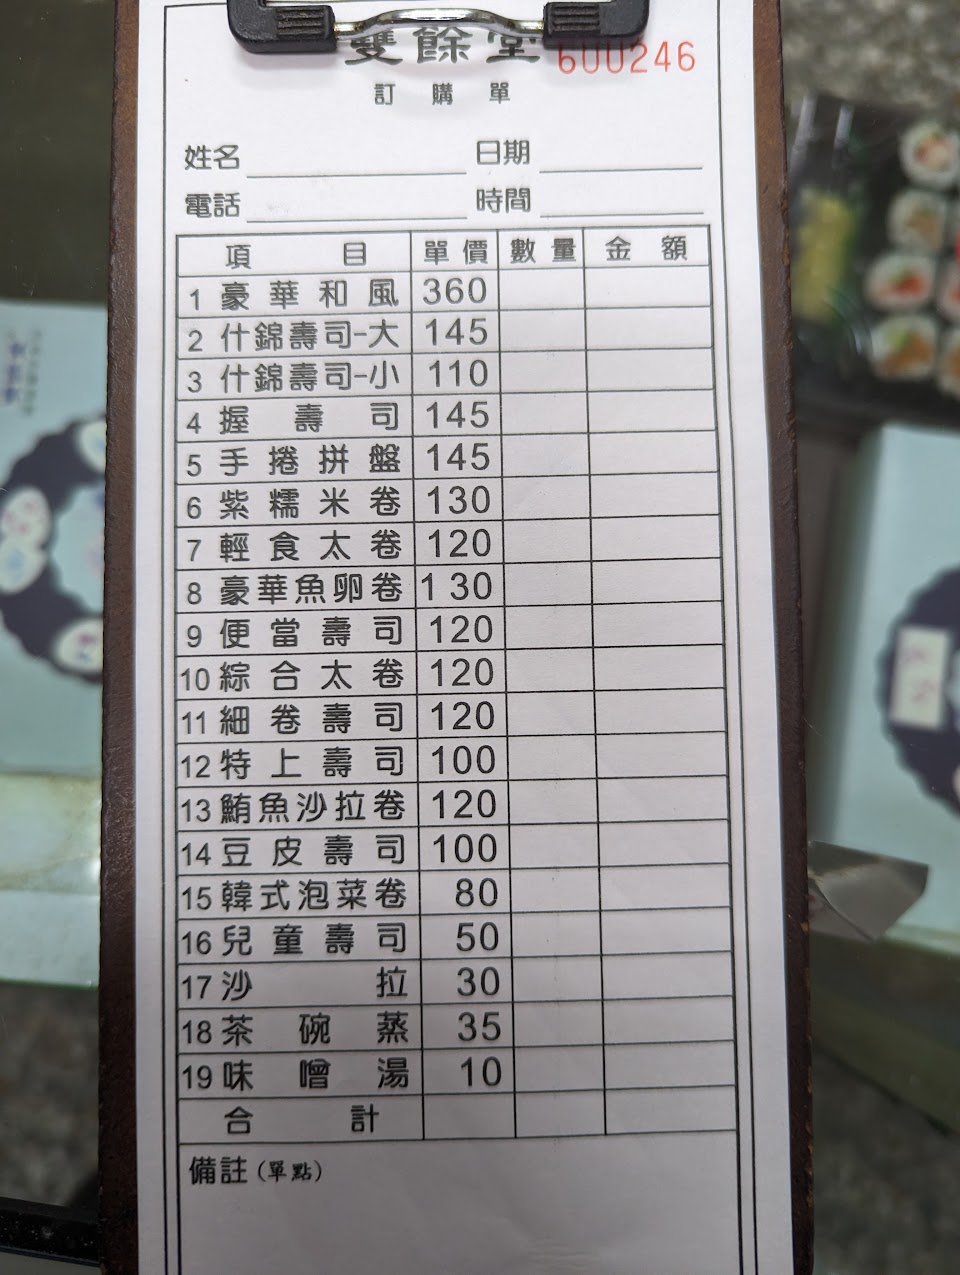 雙餘堂 600246
訂購單
姓名 日期
電話 時間
項目 單價 數量 金額
1 豪華和風 360
2 什錦壽司-大 145
3 什錦壽司-小 110
4 握壽司 145
5 手捲拼盤 145
6 紫糯米卷 130
7 輕食太卷 120
8 豪華魚卵卷 130
9 便當壽司 120
10 綜合太卷 120
11 細卷壽司 120
12 特上壽司 100
13 鮪魚沙拉卷 120
14 豆皮壽司 100
15 韓式泡菜卷 80
16 兒童壽司 50
17 沙拉 30
18 茶碗蒸 35
19 味噌湯 10
合計
備註(單點)